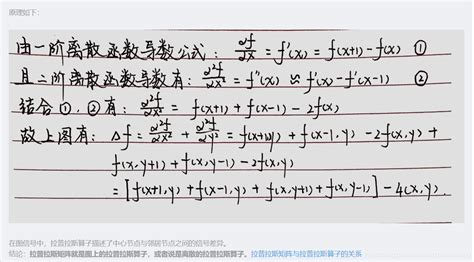 原理如下：
由一阶离散函数导数公式：∂f/∂x = f'(x) = f(x+1)-f(x) ①
且二阶离散函数导数有：∂²f/∂x² = f''(x) ≈ f'(x)-f'(x-1) ②
结合①,②有：∂²f/∂x² = f(x+1) + f(x-1) - 2f(x)
故上图有：Δf = ∂²f/∂x² + ∂²f/∂y² = f(x+1,y) + f(x-1,y) - 2f(x,y) +
f(x,y+1) + f(x,y-1) - 2f(x,y)
= [f(x+1,y) + f(x-1,y) + f(x,y+1) + f(x,y-1)] - 4(x,y).
在图信号中，拉普拉斯算子描述了中心节点与邻居节点之间的信号差异。
结论：拉普拉斯矩阵就是图上的拉普拉斯算子，或者说是离散的拉普拉斯算子。拉普拉斯矩阵与拉普拉斯算子的关系